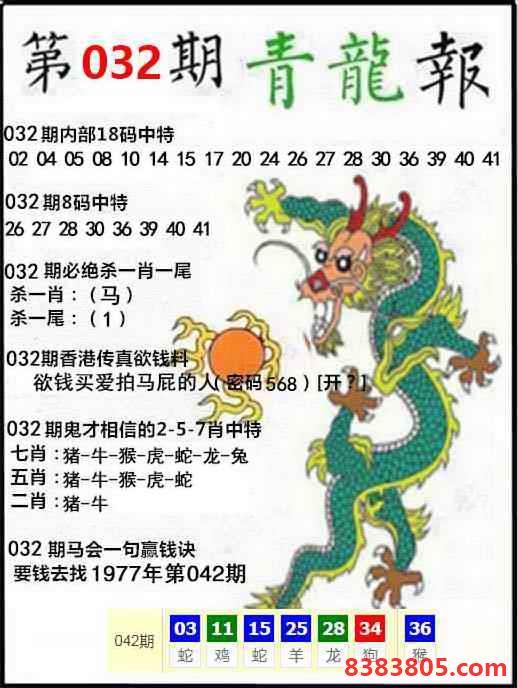 第032期 青龍報
032期内部18码中特
02 04 05 08 10 14 15 17 20 24 26 27 28 30 36 39 40 41
032期8码中特
26 27 28 30 36 39 40 41
032 期必绝杀一肖一尾
杀一肖：（马）
杀一尾：（1）
032期香港传真欲钱料
欲钱买爱拍马屁的人(密码568)[开？]
032期鬼才相信的2-5-7肖中特
七肖：猪-牛-猴-虎-蛇-龙-兔
五肖：猪-牛-猴-虎-蛇
二肖：猪-牛
032 期马会一句赢钱诀
要钱去找1977年第042期
042期 03 11 15 25 28 34 36
蛇 鸡 蛇 羊 龙 狗 猴
8383805.com